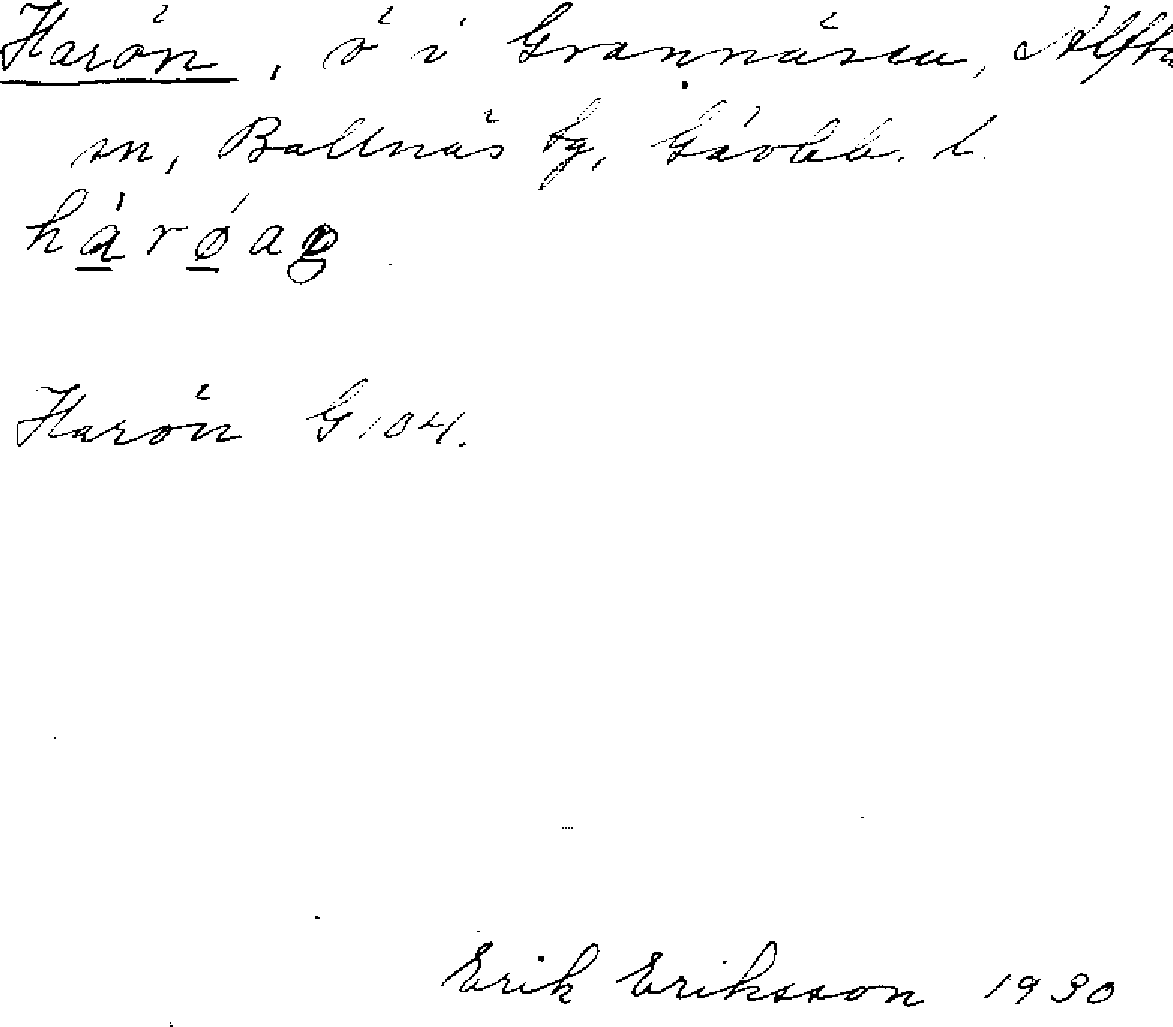 Harön, ö i Grannäsen, Alfta
sn, Bollnäs tg, Gävleb. l.
Harön G 104.
Erik Eriksson 1930